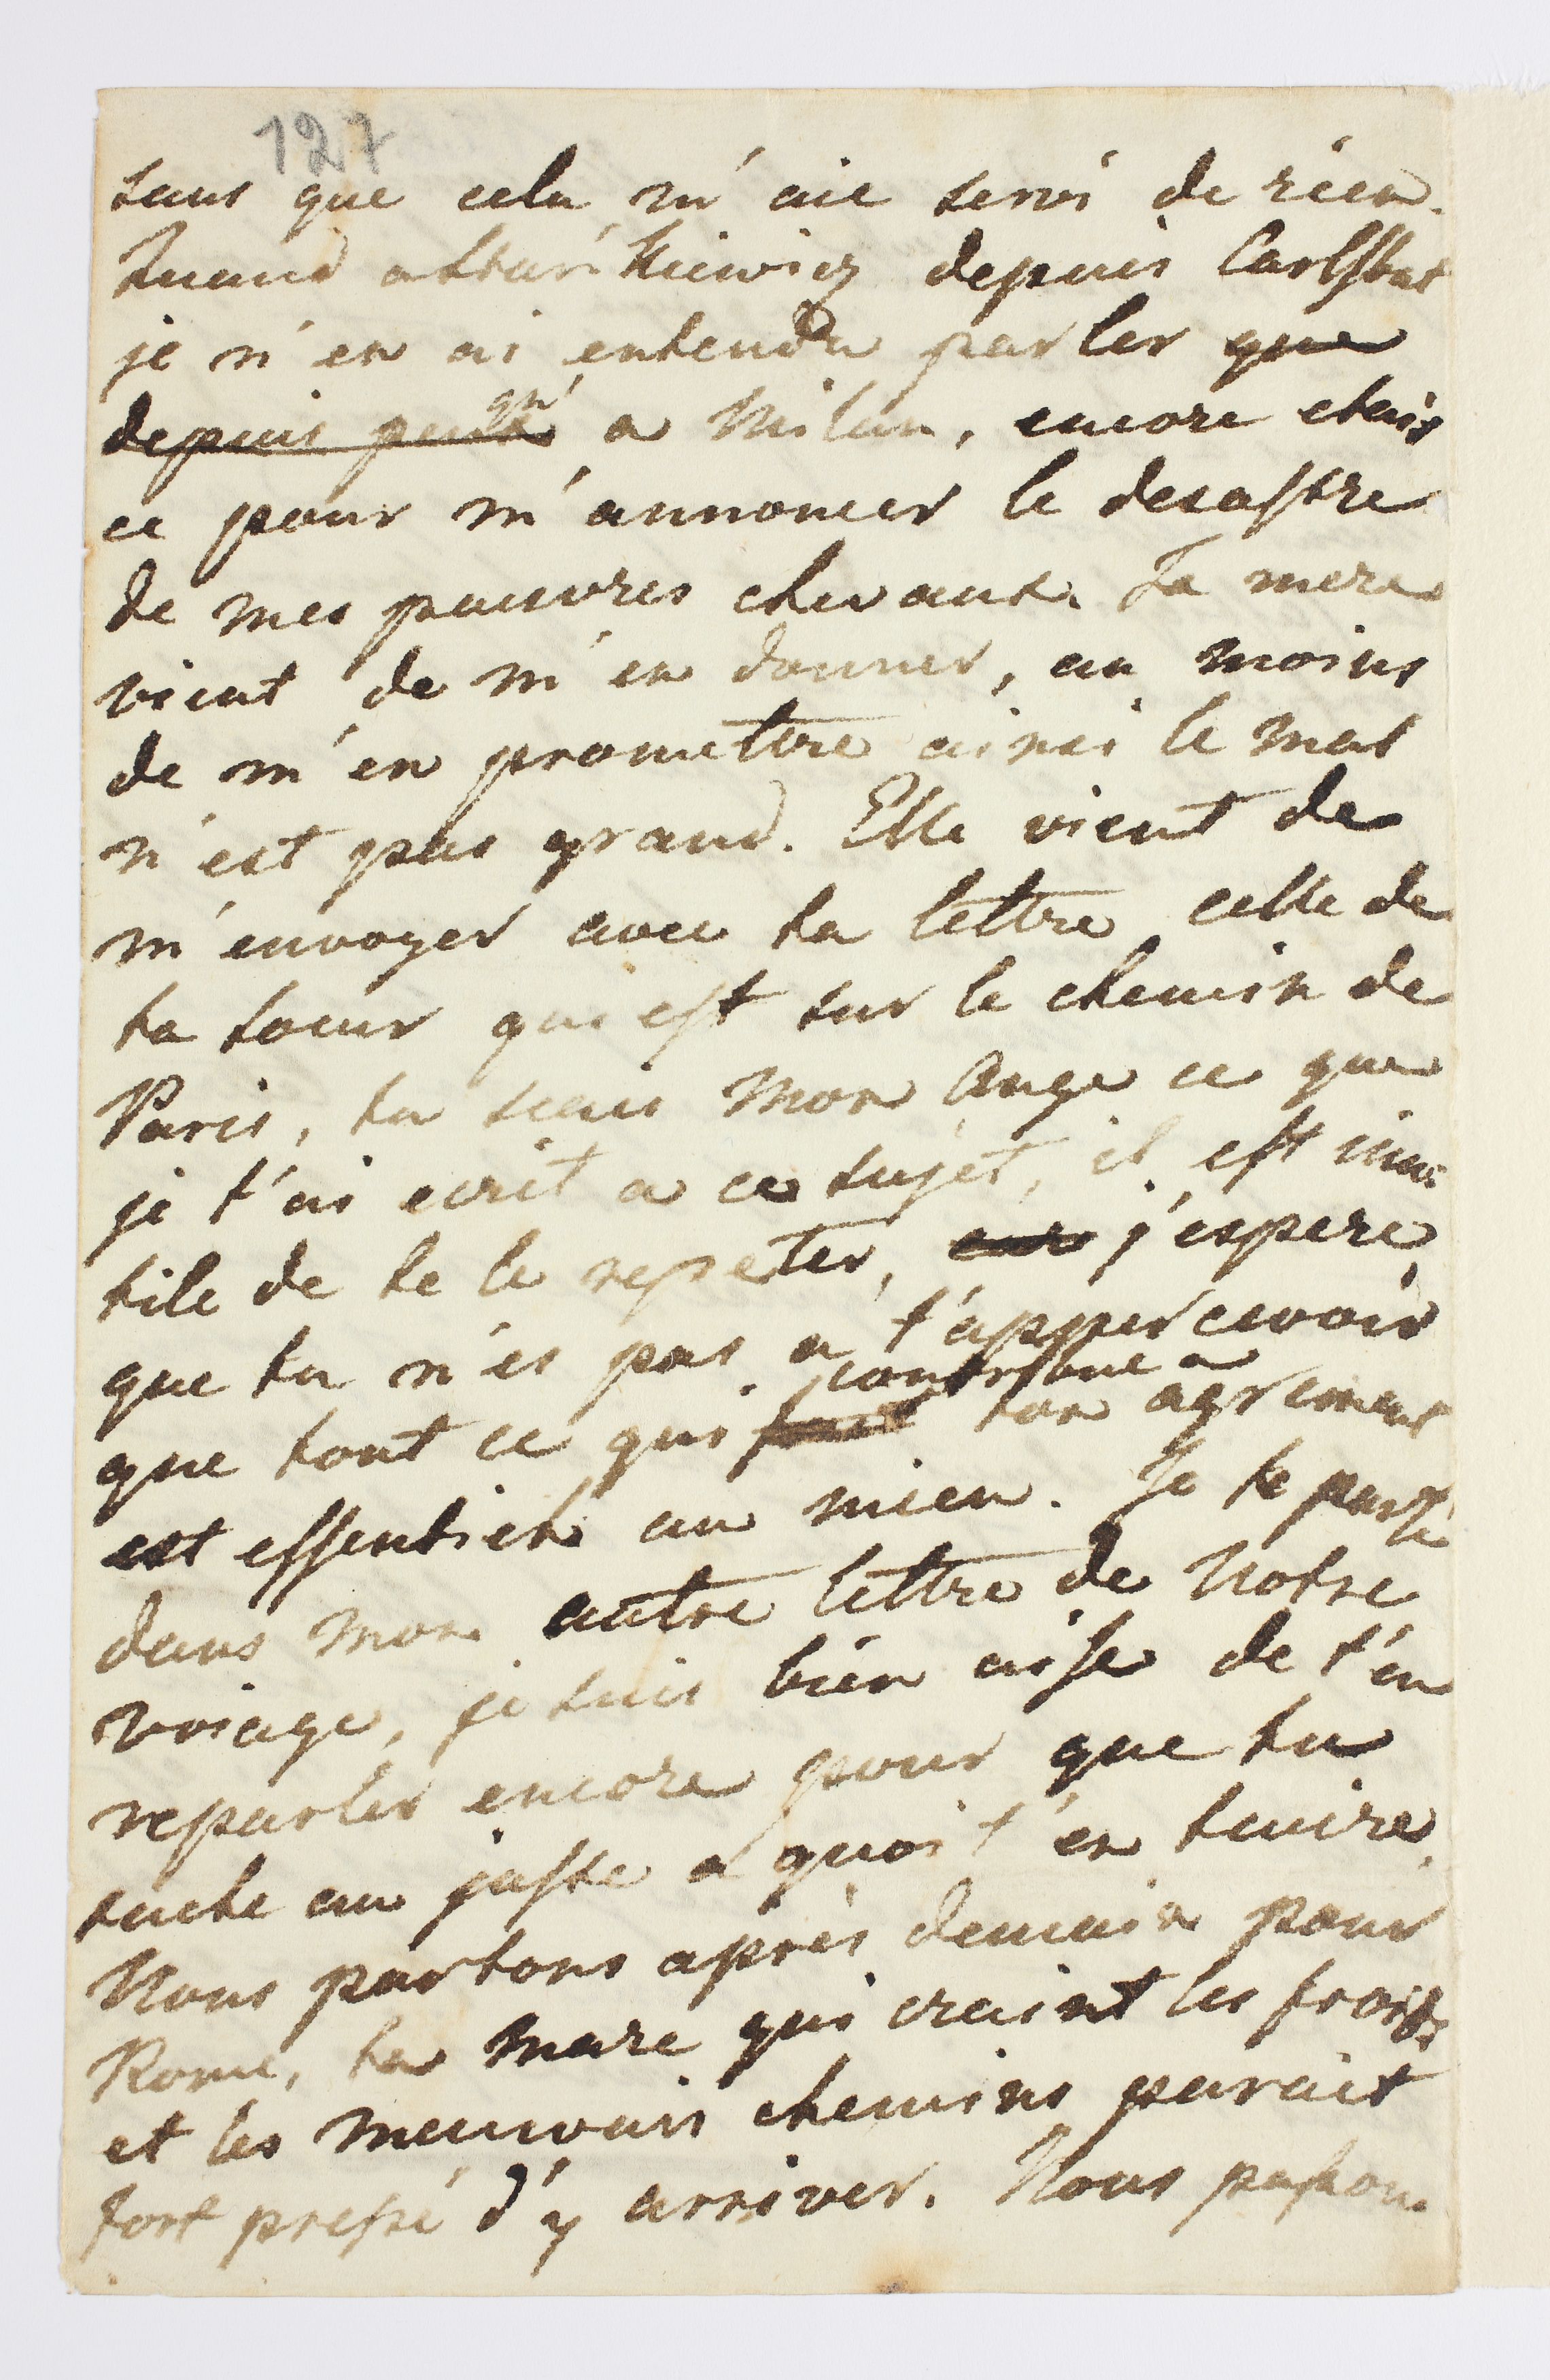 127
sans que cela m'aie servi de rien.
Quand a Staniskiewicz depuis Carlsbat
je n'en ai entendu parler que
depuis peu qu'a Milan, encore etais
ce pour m'annoncer le desastre
de mes pauvres chevaux. Ta mere
vient de m'en donner, au moins
de m'en promettre ainsi le mal
n'est pas grand. Elle vient de
m'envoyer avec ta lettre celle de
ta soeur qui est sur le chemin de
Paris, tu scais mon Ange ce que
je t'ai ecrit a ce sujet, il est inu-
tile de te le repeter, car j'espere,
que tu n'es pas a t'appercevoir
que tout ce qui contribue a ton agrement
est essentiel au mien. Je te parle
dans mon autre lettre de Notre
voiage, je suis bien aise de t'en
reparler encore pour que tu
sache au juste a quoi t'en tenire.
Nous partons après demain pour
Rome, ta mere qui craint les froids
et les meuvais chemins parait
fort pressé d'y arriver. Nous passon